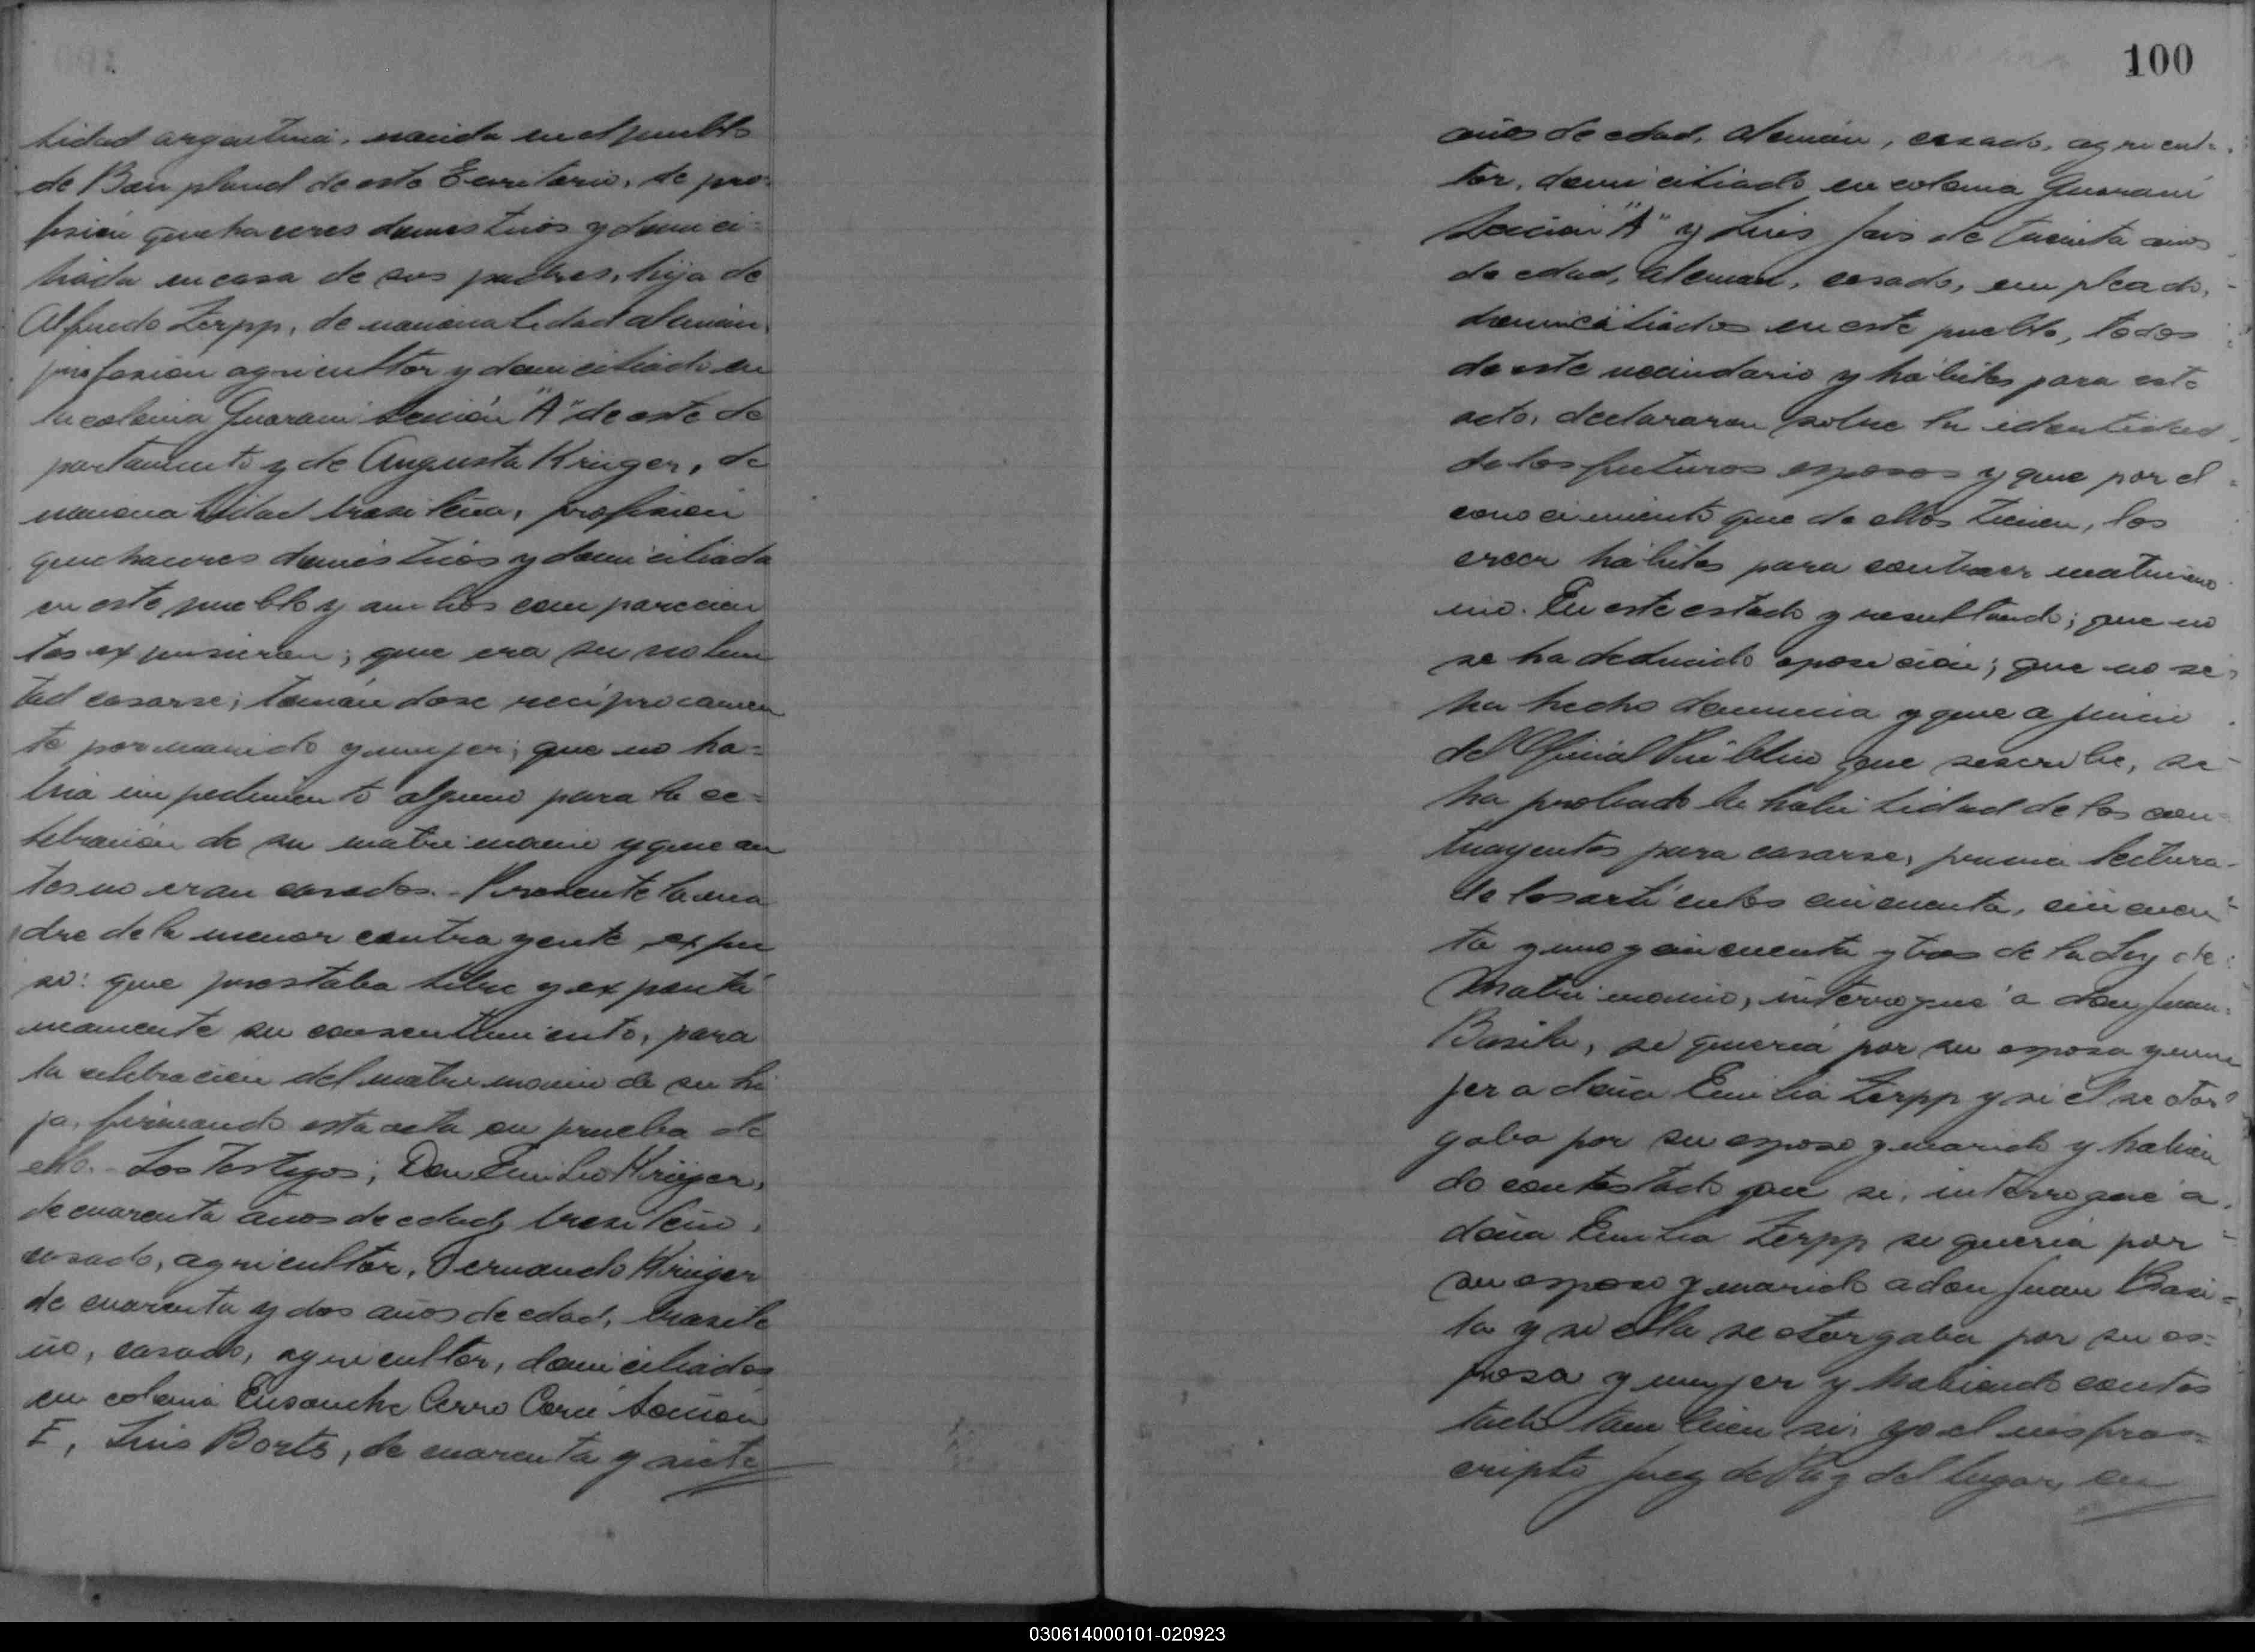 lidad argentina, nacida en el pueblo
de Bonpland de este Territorio, de pro-
fesión quehaceres domésticos y domici-
liada en casa de sus padres, hija de
Alfredo Zerpp, de nacionalidad alemán,
profesión agricultor y domiciliado en
la colonia Guaraní Sección "A" de este de
partamento y de Augusta Krüger, de
nacionalidad brasileña, profesión
quehaceres domésticos y domiciliada
en este pueblo y ambos comparecien
tes expusieron; que era su volun
tad casarse; tomándose recíprocamen
te por marido y mujer; que no ha-
bía impedimento alguno para la ce-
lebración de su matrimonio y que an
tes no eran casados.- Presente la ma
dre de la menor contrayente expu
so: que prestaba libre y expontá
neamente su consentimiento, para
la celebración del matrimonio de su hi
ja, firmando esta acta en prueba de
ello.- Los Testigos; Don Emilio Krüger,
de cuarenta años de edad, brasileño,
casado, agricultor, Fernando Krüger
de cuarenta y dos años de edad, brasile
ño, casado, agricultor, domiciliados
en colonia Ensanche Cerro Corá Sección
E, Luis Borts, de cuarenta y siete
100
años de edad, alemán, casado, agricul-
tor, domiciliado en colonia Guaraní
Sección "A" y Luis de treinta años
de edad, alemán, casado, empleado,
domiciliados en este pueblo, todos
de este vecindario y hábiles para este
acto, declararon sobre la identidad
de los futuros esposos y que por el
conocimiento que de ellos tienen, los
creen hábiles para contraer matrimo
nio. En este estado y resultando; que no
se ha deducido oposición; que no se
ha hecho denuncia y que a juicio
del Oficial Público que suscribe, se
ha probado la habilidad de los con-
trayentes para casarse, previa lectura
de los artículos cincuenta, cincuen-
ta y uno y cincuenta y tres de la Ley de
Matrimonio, interrogué a don Juan
Basila, si quería por su esposa y mu
jer a doña Emilia Zerpp y si él se otor
gaba por su esposo y marido y habien
do contestado que si, interrogué a
doña Emilia Zerpp si quería por
su esposo y marido a don Juan Basi-
la y si ella se otorgaba por su es-
posa y mujer y habiendo contes
tado también si, yo el
cripto Juez de Paz del lugar, en
030614000101-020923